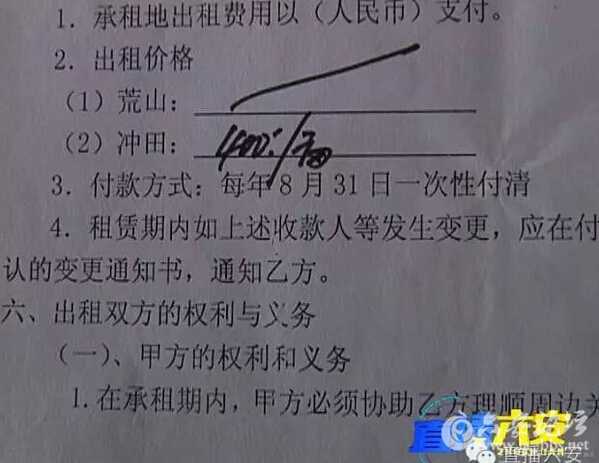 1. 承租地出租费用以（人民币）支付。
2. 出租价格
（1）荒山：
（2）冲田： 400:/亩
3. 付款方式：每年8月31日一次性付清
4. 租赁期内如上述收款人等发生变更，应在付
认的变更通知书，通知乙方。
六、出租双方的权利与义务
（一）、甲方的权利和义务
1. 在承租期内，甲方必须协助乙方理顺周边关
直播六安
直播六安